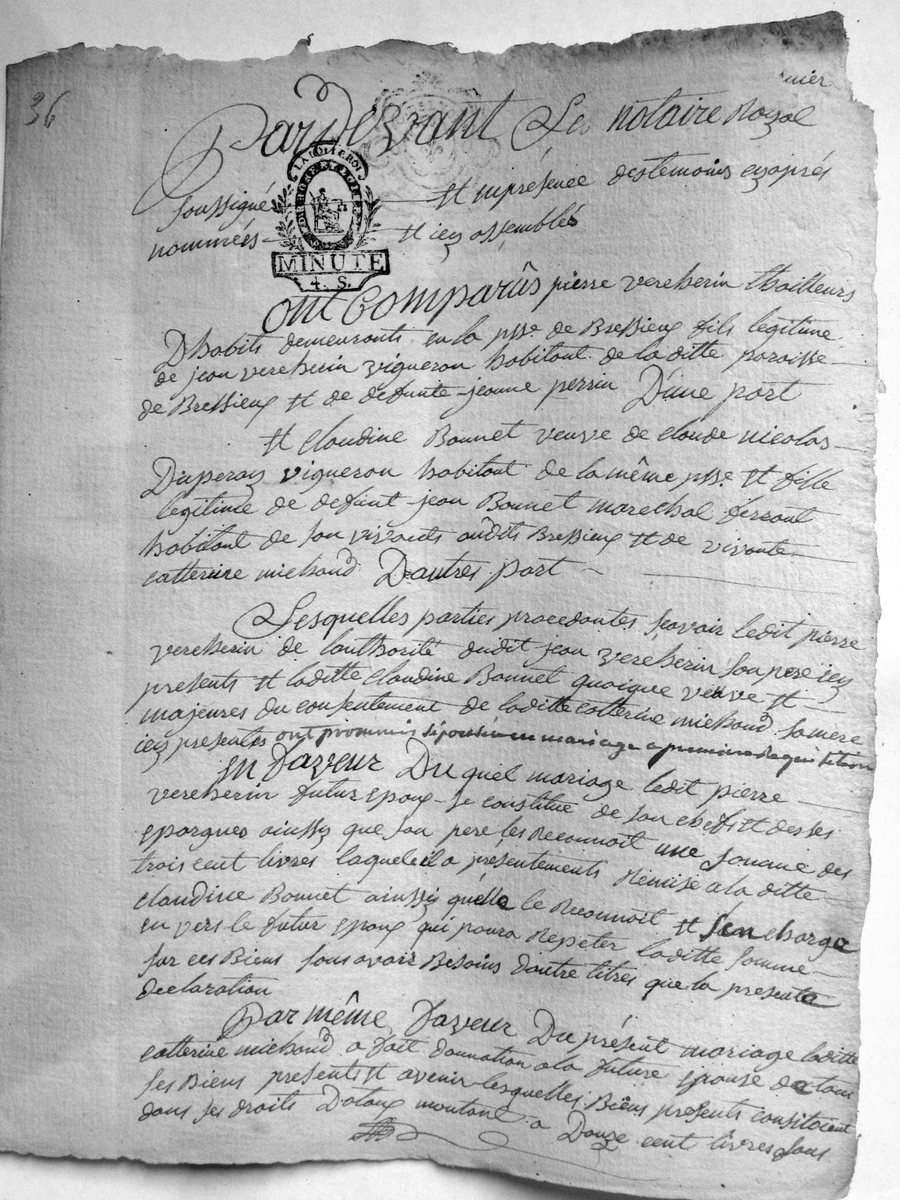 36
mier
Pardevant Le notaire Royal
LA LOI LE ROI
DEP. RHONE ET LOIRE
MINUTE
4. S.
soussigné Et enpresence destemoins cyaprés
nommées Et icy assemblés
ont Comparûs pierre vercherin thailleurs
Dhabits demeurants en la psse. de Bressieux fils legitime
de jean vercherin vigneron habitant de laditte paroisse
de Bressieux Et de defunte jeanne perrin D'une part
Et claudine Bonnet veuve de claude nicolas
Duperay vigneron habitant de la même psse. Et fille
legitime de defunt jean Bonnet marechal ferrant
habitant de son vivants audits Bressieux Et de vivante
catterine michaud D'autres part
Lesquelles parties procedantes sçavoir ledit pierre
vercherin de lauthorité dudit jean vercherin son pere icy
presents Et laditte claudine Bonnet quoique veuve Et
majeures du consentement de laditte catterine michaud sa mere
icy presentes ont promis en mariage a premiere Requisition
En faveur Du quel mariage ledit pierre
vercherin futur epoux se constitue de son chefs Et de ses
epargnes ainssy que son pere les Reconnoit une somme des
trois cent livres laquelle il a présentements Remise a la ditte
claudine Bonnet ainssy quelle le Reconnoit Et s'en charge
en vers le futur epoux qui poura Repeter laditte somme
sur ces Biens sans avoir Besoins dautre titres que la presente
declaration
Par même faveur Du présent mariage laditte
catterine michaud a fait donnation a la future epouse de tous
ses Biens presents Et avenir lesquelles Biens presents consistent
dans ses droits Dotaux montant a Douze cent livres sous